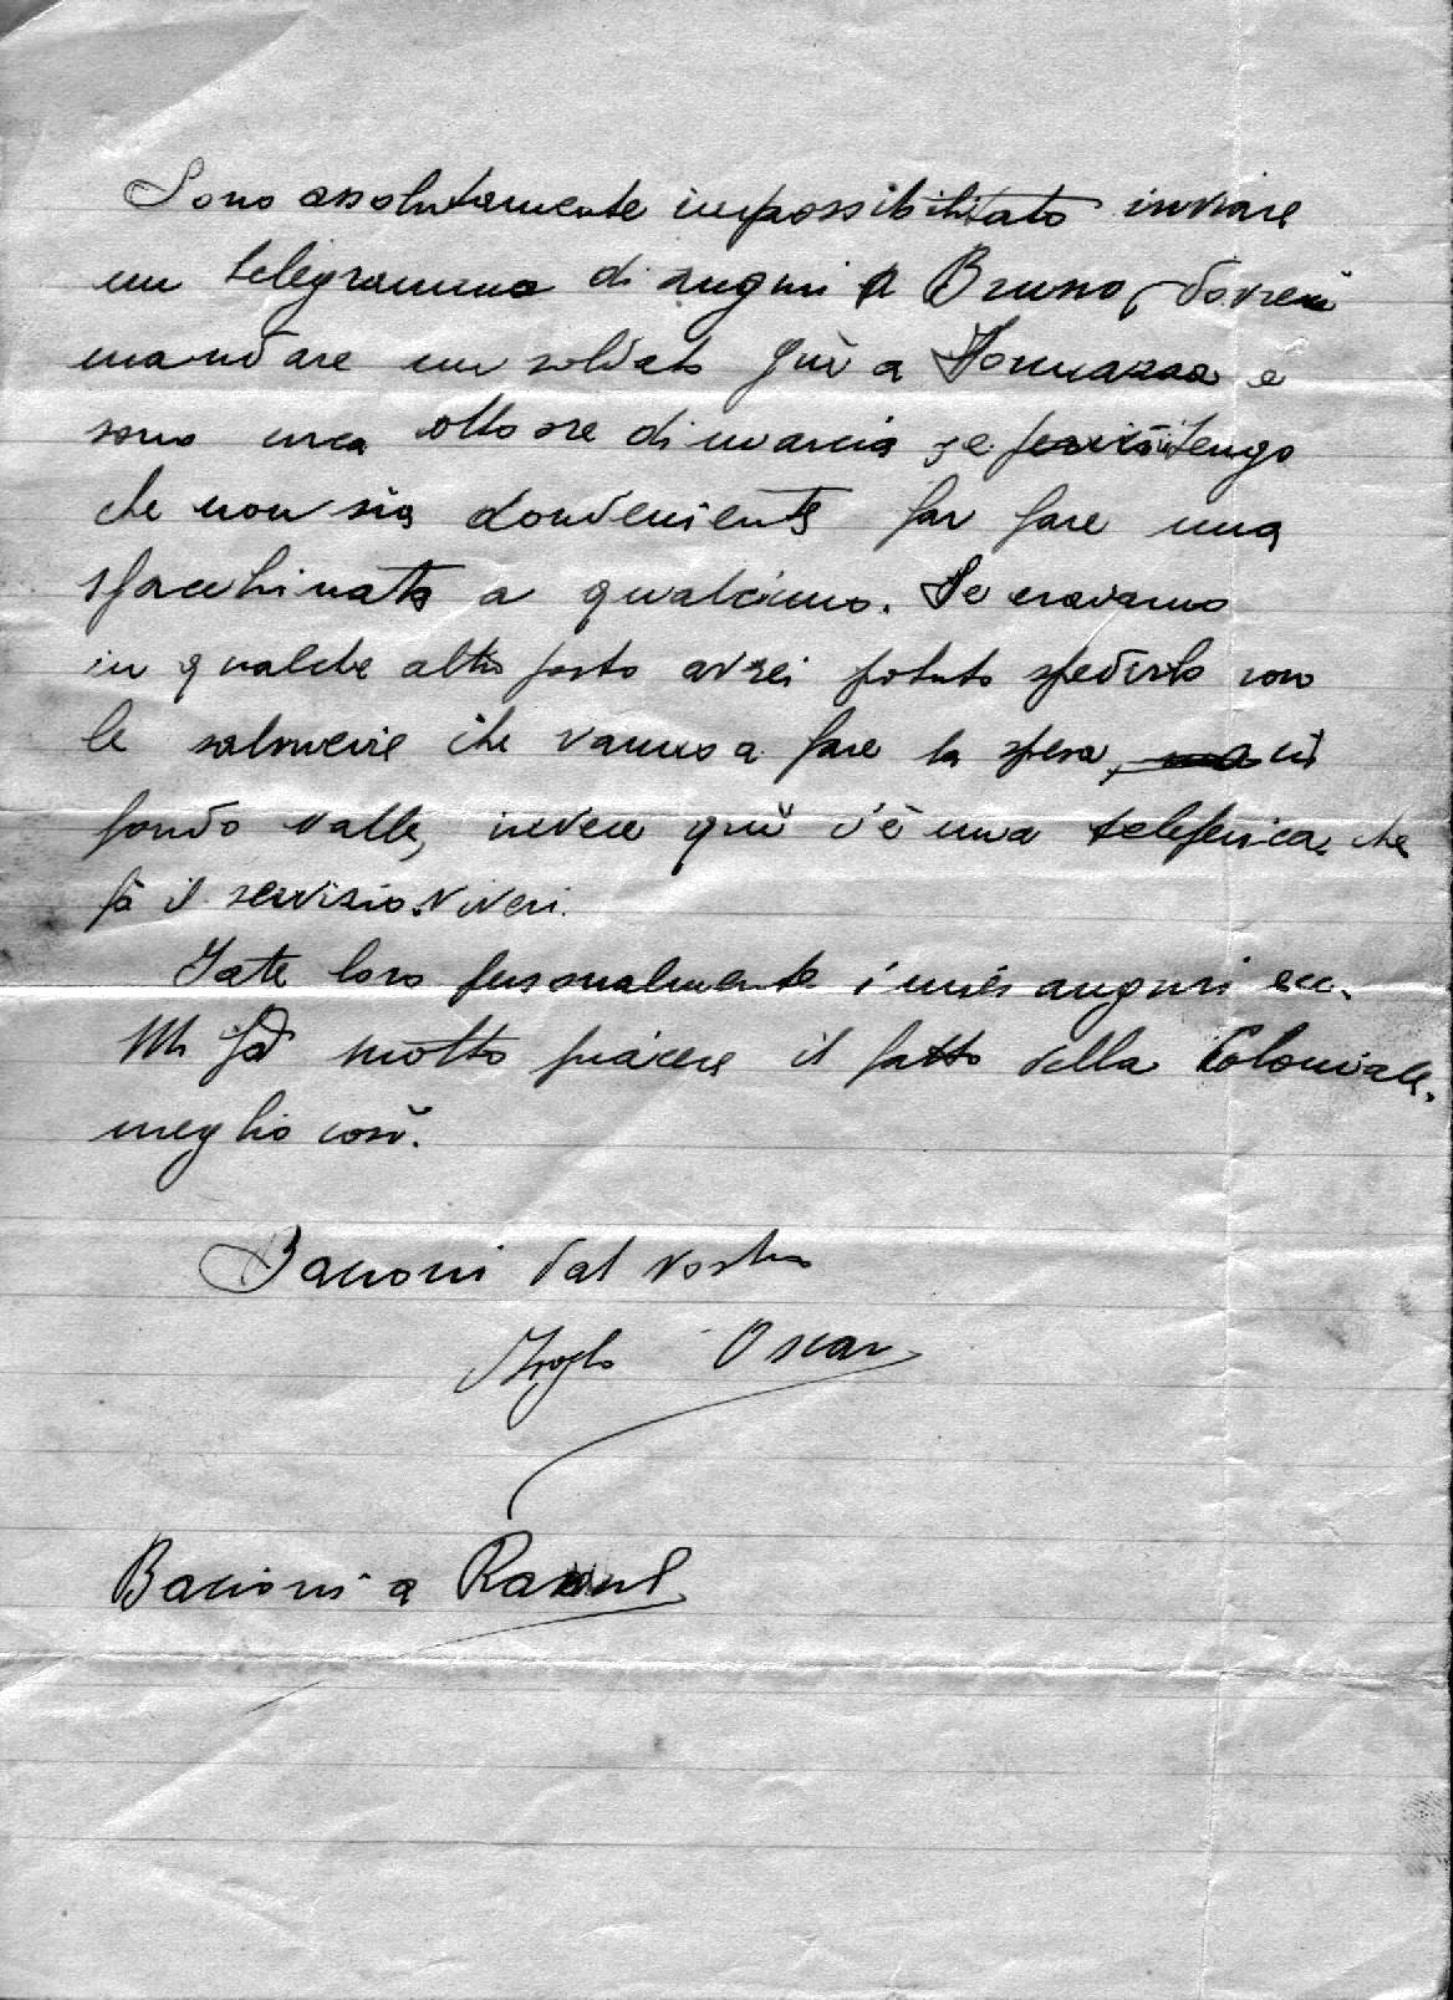 Sono assolutamente impossibilitato inviare
un telegramma di auguri a Bruno, dovrei
mandare un soldato giù a Formazza e
sono circa otto ore di marcia, e ritengo
che non sia conveniente far fare una
sfacchinata a qualcuno. Se eravamo
in qualche altro posto avrei potuto spedirlo con
le salmerie che vanno a fare la spesa, in
fondo valle, invece qui c'è una teleferica che
fà il servizio viveri.
Fate loro personalmente i miei auguri ecc.
Mi fà molto piacere il fatto della Coloniale,
meglio così.
Bacioni dal vostro
Figlio Oscar
Bacioni a Raoul